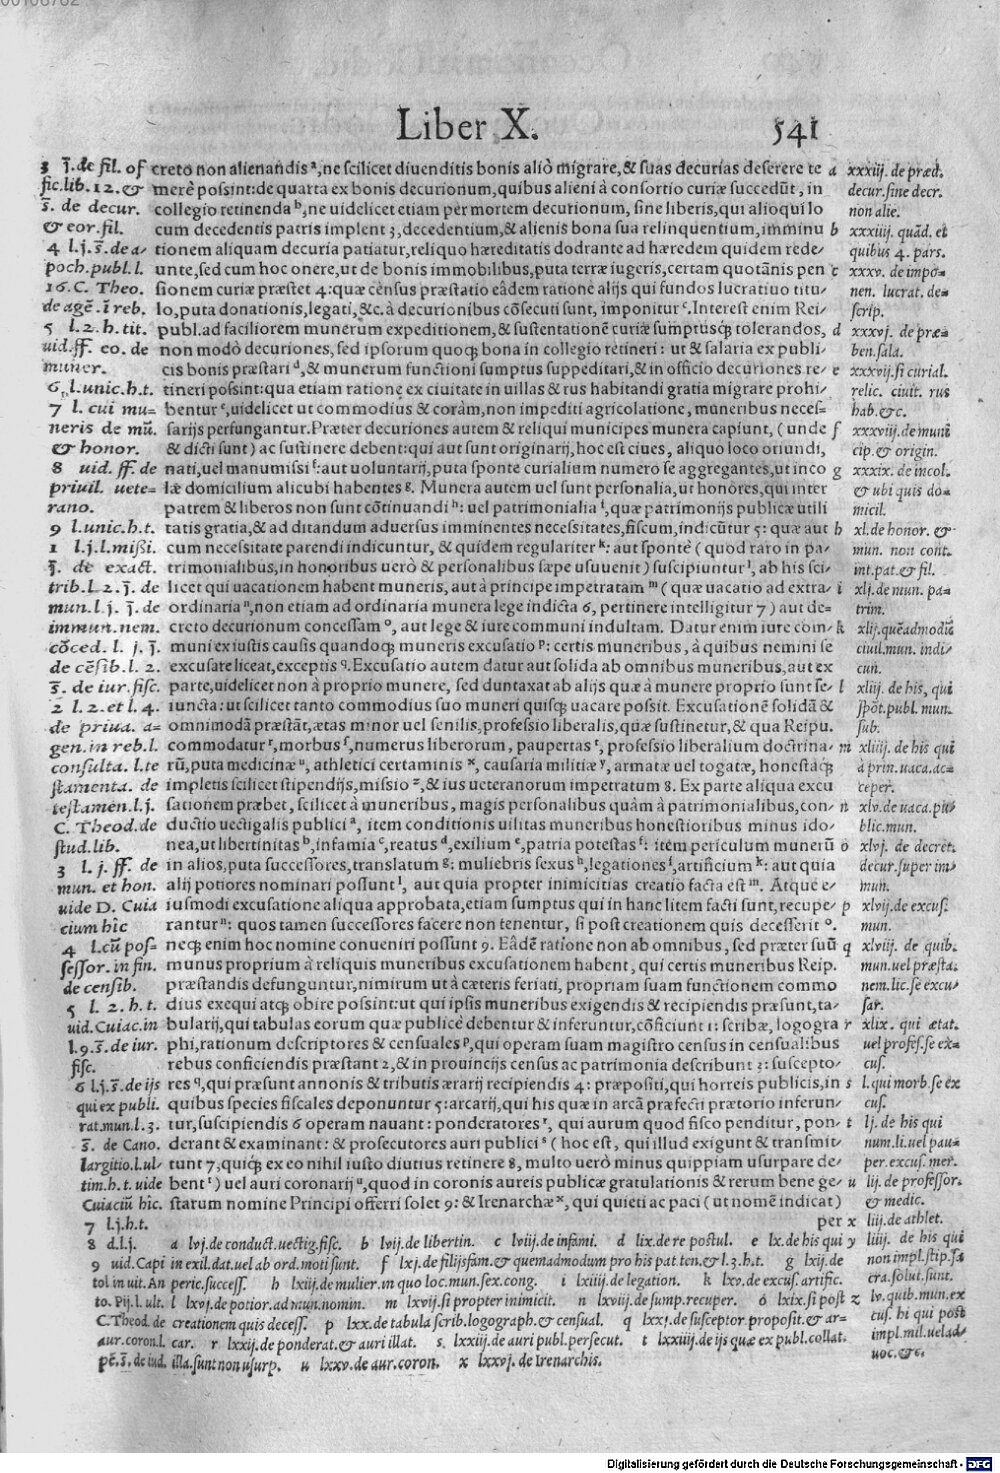 Liber X. 541
creto non alienandis ᵃ, ne scilicet diuenditis bonis aliò migrare, & suas decurias deserere te
merè possint: de quarta ex bonis decurionum, quibus alieni à consortio curiæ succedūt, in
collegio retinenda ᵇ, ne uidelicet etiam per mortem decurionum, sine liberis, qui alioqui lo
cum decedentis patris implent 3, decedentium, & alienis bona sua relinquentium, imminu
tionem aliquam decuria patiatur, reliquo hæreditatis dodrante ad hæredem quidem rede-
unte, sed cum hoc onere, ut de bonis immobilibus, puta terræ iugeris, certam quotānis pen
sionem curiæ præstet 4: quæ census præstatio eâdem ratione alijs qui fundos lucratiuo titu-
lo, puta donationis, legati, &c. à decurionibus cōsecuti sunt, imponitur ᶜ. Interest enim Rei-
publ. ad faciliorem munerum expeditionem, & sustentationē curiæ sumptusq́; tolerandos,
non modò decuriones, sed ipsorum quoq; bona in collegio retineri: ut & salaria ex publi-
cis bonis præstari ᵈ, & munerum functioni sumptus suppeditari, & in officio decuriones re-
tineri possint: qua etiam ratione ex ciuitate in uillas & rus habitandi gratia migrare prohi-
bentur ᵉ, uidelicet ut commodius & coràm, non impediti agricolatione, muneribus neces-
sarijs perfungantur. Præter decuriones autem & reliqui municipes munera capiunt, (unde
& dicti sunt) ac sustinere debent: qui aut sunt originarij, hoc est ciues, aliquo loco oriundi,
nati, uel manumissi ᶠ: aut uoluntarij, puta sponte curialium numero se aggregantes, ut inco
læ domicilium alicubi habentes ᵍ. Munera autem uel sunt personalia, ut honores, qui inter
patrem & liberos non sunt cōtinuandi ʰ: uel patrimonialia ⁱ, quæ patrimonijs publicæ utili
tatis gratia, & ad ditandum aduersus imminentes necessitates, fiscum, indicūtur 5: quæ aut
cum necessitate parendi indicuntur, & quidem regulariter ᵏ: aut spontè (quod raro in pa-
trimonialibus, in honoribus uerò & personalibus sæpe usuuenit) suscipiuntur ˡ, ab his sci-
licet qui uacationem habent muneris, aut à principe impetratam ᵐ (quæ uacatio ad extra-
ordinaria ⁿ, non etiam ad ordinaria munera lege indicta 6, pertinere intelligitur 7) aut de-
creto decurionum concessam ᵒ, aut lege & iure communi indultam. Datur enim iure com-
muni ex iustis causis quandoq; muneris excusatio ᵖ: certis muneribus, à quibus nemini se
excusare liceat, exceptis ᑫ. Excusatio autem datur aut solida ab omnibus muneribus, aut ex
parte, uidelicet non à proprio munere, sed duntaxat ab alijs quæ à munere proprio sunt se-
iuncta: ut scilicet tanto commodius suo muneri quisq; uacare possit. Excusationē solidā &
omnimodā præstāt, ætas minor uel senilis, professio liberalis, quæ sustinetur, & qua Reipu.
commodatur ʳ, morbus ˢ, numerus liberorum, paupertas ᵗ, professio liberalium doctrina-
rū, puta medicinæ ᵘ, athletici certaminis ˣ, causaria militiæ ʸ, armatæ uel togatæ, honestaq́;
impletis scilicet stipendijs, missio ᶻ, & ius ueteranorum impetratum 8. Ex parte aliqua excu
sationem præbet, scilicet à muneribus, magis personalibus quàm à patrimonialibus, con-
ductio uectigalis publici ᵃ, item conditionis uilitas muneribus honestioribus minus ido-
nea, ut libertinitas ᵇ, infamia ᶜ, reatus ᵈ, exilium ᵉ, patria potestas ᶠ: item periculum munerū
in alios, puta successores, translatum ᵍ: muliebris sexus ʰ, legationes ⁱ, artificium ᵏ: aut quia
alij potiores nominari possunt ˡ, aut quia propter inimicitias creatio facta est ᵐ. Atque e-
iusmodi excusatione aliqua approbata, etiam sumptus qui in hanc litem facti sunt, recupe-
rantur ⁿ: quos tamen successores facere non tenentur, si post creationem quis decesserit ᵒ.
neq; enim hoc nomine conueniri possunt 9. Eâdē ratione non ab omnibus, sed præter suū
munus proprium à reliquis muneribus excusationem habent, qui certis muneribus Reip.
præstandis defunguntur, nimirum ut à cæteris feriati, propriam suam functionem commo
dius exequi atq; obire possint: ut qui ipsis muneribus exigendis & recipiendis præsunt, ta-
bularij, qui tabulas eorum quæ publicè debentur & inferuntur, cōficiunt 1: scribæ, logogra
phi, rationum descriptores & censuales ᵖ, qui operam suam magistro census in censualibus
rebus conficiendis præstant 2, & in prouincijs census ac patrimonia describunt 3: suscepto-
res ᑫ, qui præsunt annonis & tributis ærarij recipiendis 4: præpositi, qui horreis publicis, in
quibus species fiscales deponuntur 5: arcarij, qui his quæ in arcā præfecti prætorio inferun-
tur, suscipiendis 6 operam nauant: ponderatores ʳ, qui aurum quod fisco penditur, pon-
derant & examinant: & prosecutores auri publici ˢ (hoc est, qui illud exigunt & transmit-
tunt 7, quiq́; ex eo nihil iusto diutius retinere 8, multo uerò minus quippiam usurpare de-
bent ᵗ) uel auri coronarij ᵘ, quod in coronis aureis publicæ gratulationis & rerum bene ge-
starum nomine Principi offerri solet 9: & Irenarchæ ˣ, qui quieti ac paci (ut nomē indicat)
per
3 j̄. de fil. of
fic. lib. 12. &
s̄. de decur.
& eor. fil.
4 l. j. s̄. de a-
poch. publ. l.
16. C. Theo.
de agē. ī reb.
5 l. 2. h. tit.
uid. ff. eo. de
muner.
6 l. unic. h. t.
7 l. cui mu-
neris de mū.
& honor.
8 uid. ff. de
priuil. uete-
rano.
9 l. unic. h. t.
1 l. j. l. missi.
j̄. de exact.
trib. l. 2. j̄. de
mun. l. j. j̄. de
immun. nem.
cōced. l. j. j̄.
de cēsib. l. 2.
s̄. de iur. fisc.
2 l. 2. et l. 4.
de priua. a-
gen. in reb. l.
consulta. l. te
stamenta. de
testamen. l. j.
C. Theod. de
stud. lib.
3 l. j. ff. de
mun. et hon.
uide D. Cuia
cium hic
4 l. cū pos-
sessor. in fin.
de censib.
5 l. 2. h. t.
uid. Cuiac. in
l. 9. s̄. de iur.
fisc.
6 l. j. s̄. de ijs
qui ex publi.
rat. mun. l. 3.
s̄. de Cano.
largitio. l. ul-
tim. h. t. uide
Cuiaciū hic.
7 l. j. h. t.
8 d. l. j.
9 uid. Capi
tol in uit. An
to. Pij. l. ult.
C. Theod. de
aur. coron. l.
pē. s̄. de iud.
a xxxiij. de præd.
decur. sine decr.
non alie.
b xxxiiij. quād. et
quibus 4. pars.
c xxxv. de impo-
nen. lucrat. de-
scrip.
d xxxvj. de præ-
ben. sala.
e xxxvij. si curial.
relic. ciuit. rus
hab. &c.
f xxxviij. de muni
cip. & origin.
g xxxix. de incol.
& ubi quis do-
micil.
h xl. de honor. &
mun. non cont.
int. pat. & fil.
i xlj. de mun. pa-
trim.
k xlij. quēadmodū
ciuil. mun. indi-
cun.
l xliij. de his, qui
spōt. publ. mun.
sub.
m xliiij. de his qui
à prin. uaca. ac-
ceper.
n xlv. de uaca. pu-
blic. mun.
o xlvj. de decret.
decur. super im-
mun.
p xlvij. de excus.
mun.
q xlviij. de quib.
mun. uel præsta.
nem. lic. se excu-
sar.
r xlix. qui ætat.
uel profes. se ex-
cus.
s l. qui morb. se ex
cus.
t lj. de his qui
num. li. uel pau-
per. excus. mer.
u lij. de professor.
& medic.
x liij. de athlet.
y liiij. de his qui
non impl. stip. sa
cra. solut. sunt.
z lv. quib. mun. ex
cus. hi qui post
impl. mil. uel ad-
uoc. &c.
a lvj. de conduct. uectig. fisc. b lvij. de libertin. c lviij. de infami. d lix. de re postul. e lx. de his qui
in exil. dat. uel ab ord. moti sunt. f lxj. de filijsfam. & quemadmodum pro his pat. ten. & l. 3. h. t. g lxij. de
peric. success. h lxiij. de mulier. in quo loc. mun. sex. cong. i lxiiij. de legation. k lxv. de excus. artific.
l lxvj. de potior. ad mun. nomin. m lxvij. si propter inimicit. n lxviij. de sump. recuper. o lxix. si post
creationem quis decess. p lxx. de tabula scrib. logograph. & censual. q lxxj. de susceptor. proposit. & ar-
car. r lxxij. de ponderat. & auri illat. s lxxiij. de auri publ. persecut. t lxxiiij. de ijs quæ ex publ. collat.
illa. sunt non usurp. u lxxv. de aur. coron. x lxxvj. de Irenarchis.
Digitalisierung gefördert durch die Deutsche Forschungsgemeinschaft - DFG